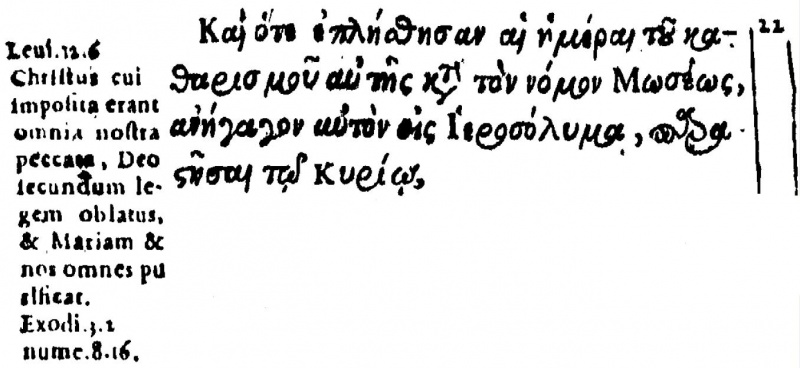 Καὶ ὅτε ἐπλήσθησαν αἱ ἡμέραι τοῦ κα-
θαρισμοῦ αὐτῆς κτ τὸν νόμον Μωσέως,
ἀνήγαγον αὐτὸν εἰς Ἱεροσόλυμα, παρα-
στῆσαι τῷ Κυρίῳ,
22
Leui.12.6
Christus cui
imposita erant
omnia nostra
peccata, Deo
secundum le-
gem oblatus,
& Mariam &
nos omnes pu
rificat.
Exodi.3.2
nume.8.16.